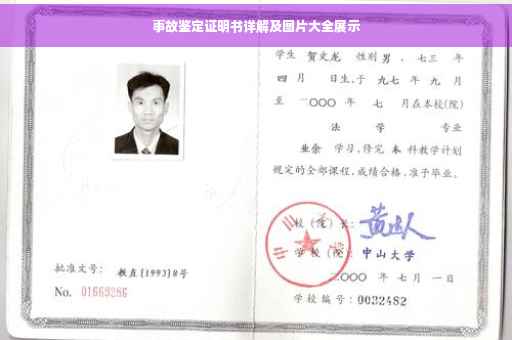 事故鉴定证明书详解及图片大全展示
学生 贺文龙 性别 男 、七三 年
四 月 日生,于 九七 年 九 月
至 二〇〇〇 年 七 月在本校(院)
法 学 专业
业余 学习,修完 本 科教学计划
规定的全部课程,成绩合格,准予毕业。
校(院)长:
学校(院): 中山大学
二〇〇〇 年 七 月 一日
学校编号: 0032482
批准文号: 教直[1993]8号
No. 01669286